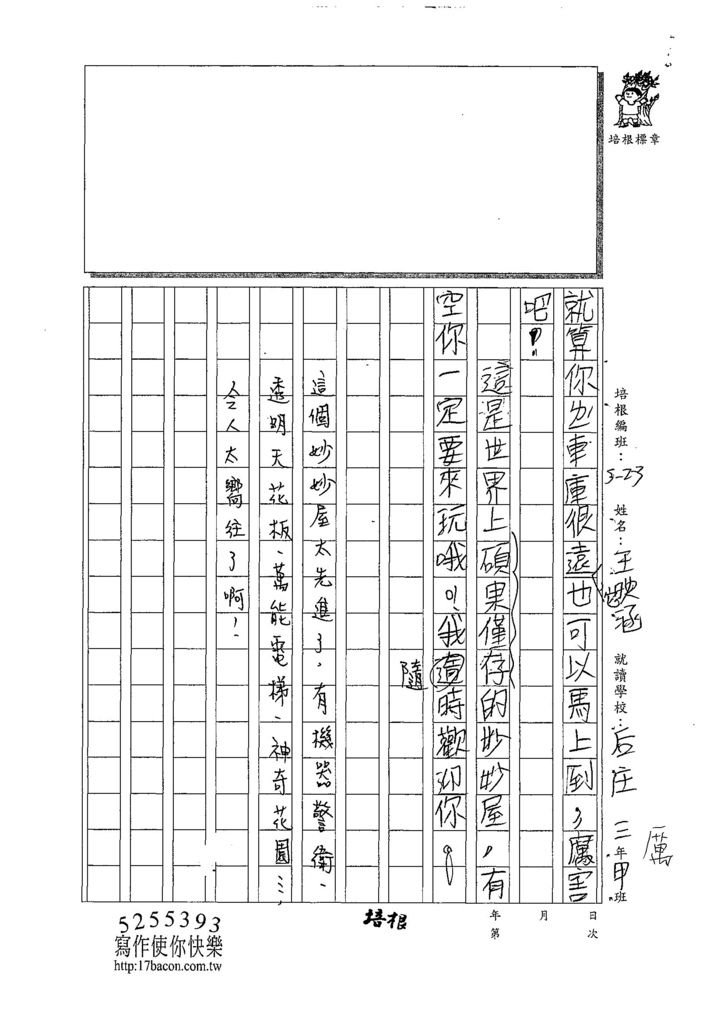 培根標章
培根編班：
3-23
姓名：王
涵
就讀學校：后庄
三年甲班
厲
就算你出車庫很遠也可以馬上到，厲害
吧！
這是世界上碩果僅存的妙妙屋，有
空你一定要來玩哦！我適時歡迎你。
隨
這個妙妙屋太先進了，有機器警衛、
透明天花板、萬能電梯、神奇花園…，
令人太嚮往了啊！
年　月　日
第　次
培根
5255393
寫作使你快樂
http:17bacon.com.tw